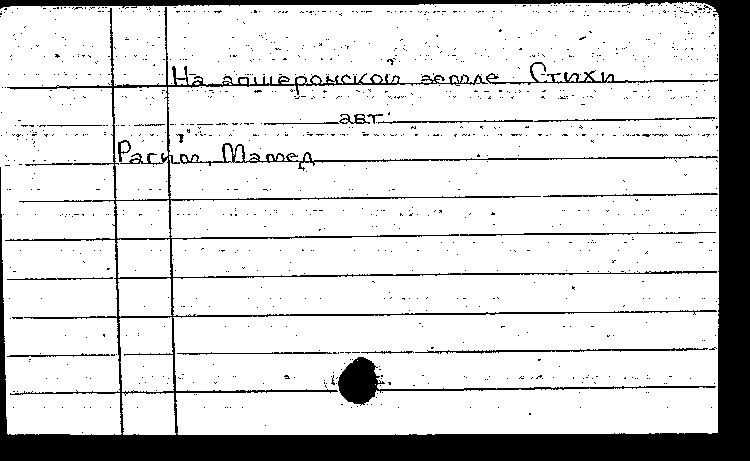 На апшеронской земле Стихи
авт.
Рагим, Мамед